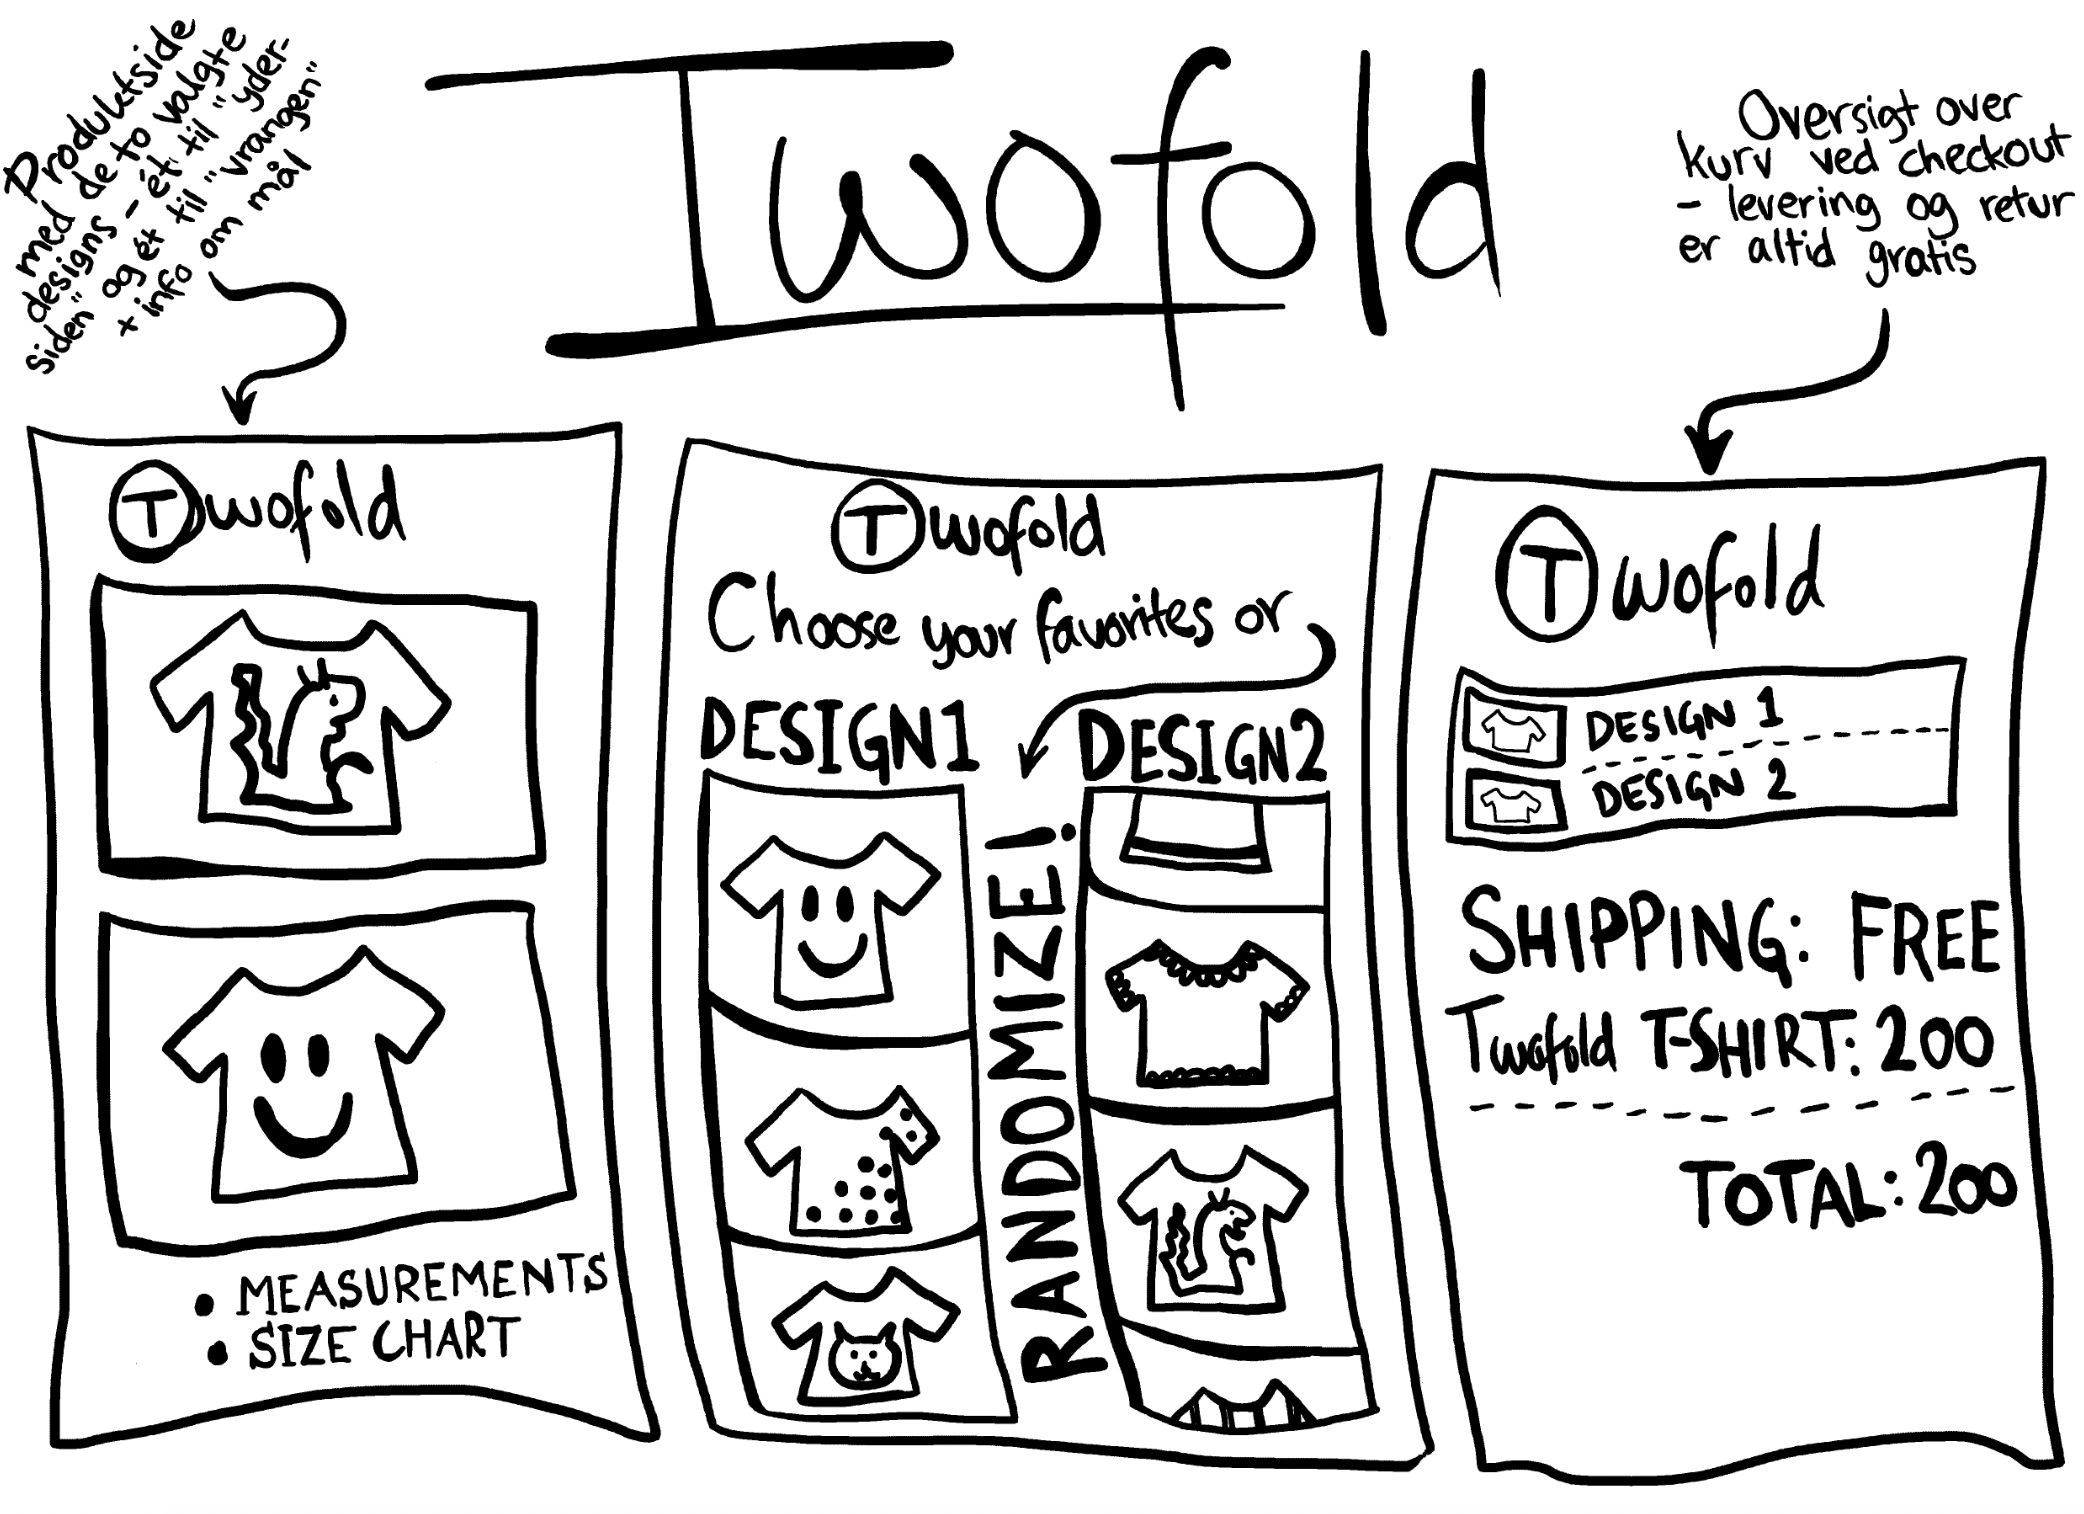 Twofold
Produktside
med de to valgte
designs - ét til "yder-
siden" og ét til "vrangen"
+ info om mål
Oversigt over
kurv ved checkout
- levering og retur
er altid gratis
Twofold
• MEASUREMENTS
• SIZE CHART
Twofold
Choose your favorites or
DESIGN1
RANDOMIZE!
DESIGN2
Twofold
DESIGN 1
DESIGN 2
SHIPPING: FREE
Twofold T-SHIRT: 200
TOTAL: 200